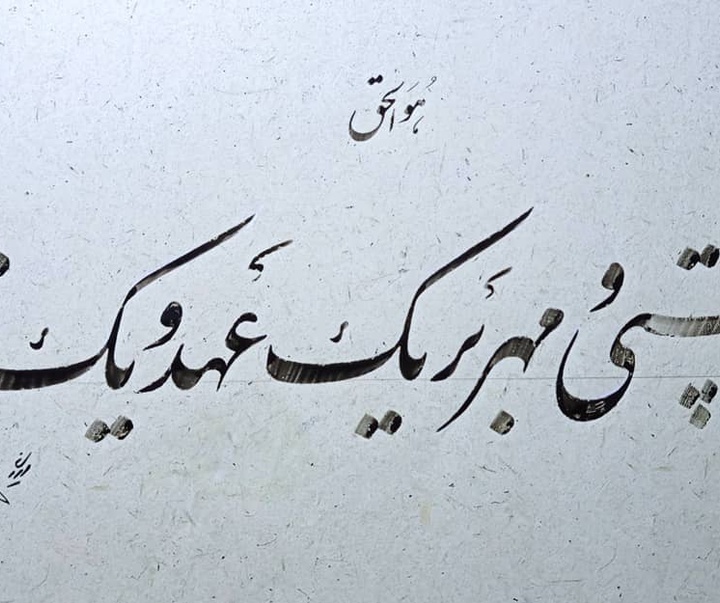 هُوَ الحق
ستی و مهر بر یک عهد و یک